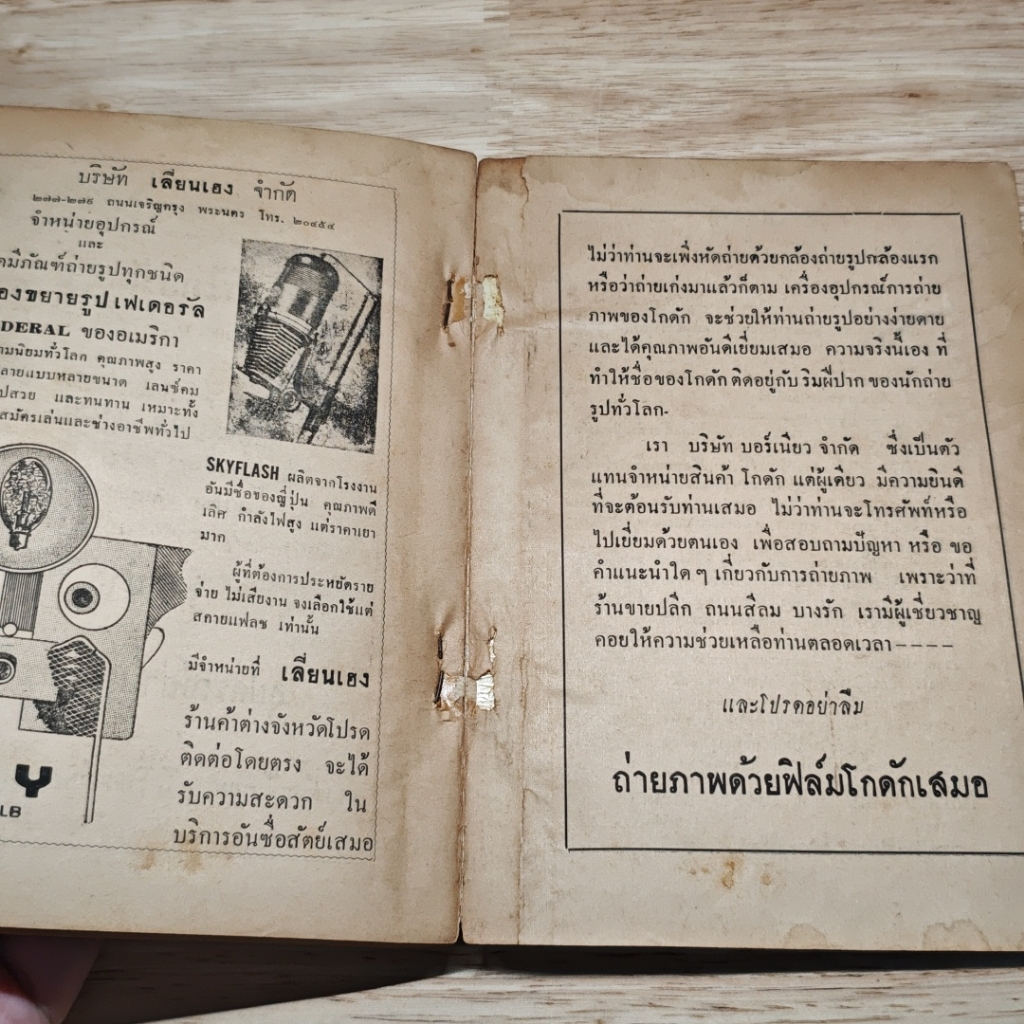 บริษัท เลี่ยนเฮง จำกัด
๒๗๗-๒๗๙ ถนนเจริญกรุง พระนคร โทร. ๒๐๔๕๔
จำหน่ายอุปกรณ์
และ
เคมีภัณฑ์ถ่ายรูปทุกชนิด
ขยายรูป เฟเดอรัล
DERAL ของอเมริกา
นิยมทั่วโลก คุณภาพสูง ราคา
หลายแบบหลายขนาด เลนซ์คม
สวย และทนทาน เหมาะทั้ง
สมัครเล่นและช่างอาชีพทั่วไป
SKYFLASH ผลิตจากโรงงาน
อันมีชื่อของญี่ปุ่น คุณภาพดี
เลิศ กำลังไฟสูง แต่ราคาเยา
มาก
ผู้ที่ต้องการประหยัดราย
จ่าย ไม่เสียงาน จงเลือกใช้แต่
สกายแฟลช เท่านั้น
มีจำหน่ายที่ เลี่ยนเฮง
ร้านค้าต่างจังหวัดโปรด
ติดต่อโดยตรง จะได้
รับความสะดวก ใน
บริการอันซื่อสัตย์เสมอ
Y
LB
ไม่ว่าท่านจะเพิ่งหัดถ่ายด้วยกล้องถ่ายรูปกล้องแรก
หรือว่าถ่ายเก่งมาแล้วก็ตาม เครื่องอุปกรณ์การถ่าย
ภาพของโกดัก จะช่วยให้ท่านถ่ายรูปอย่างง่ายดาย
และได้คุณภาพอันดีเยี่ยมเสมอ ความจริงนี้เอง ที่
ทำให้ชื่อของโกดัก ติดอยู่กับ ริมฝีปาก ของนักถ่าย
รูปทั่วโลก.
เรา บริษัท บอร์เนียว จำกัด ซึ่งเป็นตัว
แทนจำหน่ายสินค้า โกดัก แต่ผู้เดียว มีความยินดี
ที่จะต้อนรับท่านเสมอ ไม่ว่าท่านจะโทรศัพท์หรือ
ไปเยี่ยมด้วยตนเอง เพื่อสอบถามปัญหา หรือ ขอ
คำแนะนำใด ๆ เกี่ยวกับการถ่ายภาพ เพราะว่าที่
ร้านขายปลีก ถนนสีลม บางรัก เรามีผู้เชี่ยวชาญ
คอยให้ความช่วยเหลือท่านตลอดเวลา----
และโปรดอย่าลืม
ถ่ายภาพด้วยฟิล์มโกดักเสมอ